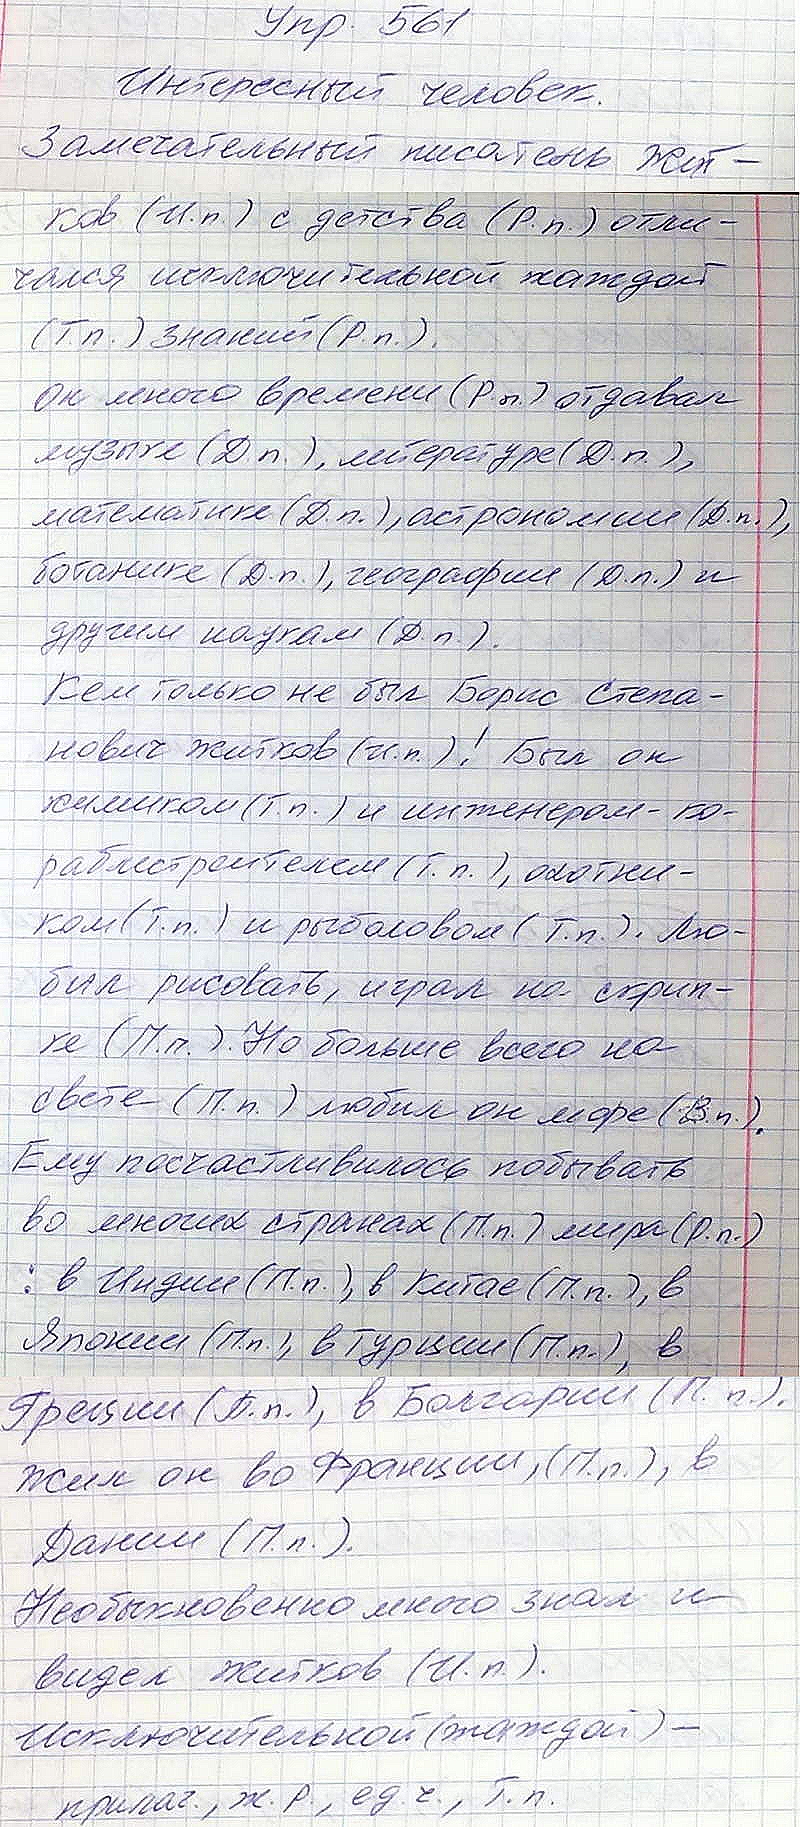 Упр. 561
Интересный человек.
Замечательный писатель Жит-
ков (И.п.) с детства (Р.п.) отли-
чался исключительной жаждой
(Т.п.) знаний (Р.п.).
Он много времени (Р.п.) отдавал
музыке (Д.п.), литературе (Д.п.),
математике (Д.п.), астрономии (Д.п.),
ботанике (Д.п.), географии (Д.п.) и
другим наукам (Д.п.).
Кем только не был Борис Степа-
нович Житков (И.п.)! Был он
химиком (Т.п.) и инженером-ко-
раблестроителем (Т.п.), охотни-
ком (Т.п.) и рыболовом (Т.п.). Лю-
бил рисовать, играл на скрип-
ке (П.п.). Но больше всего на
свете (П.п.) любил он море (В.п.).
Ему посчастливилось побывать
во многих странах (П.п.) мира (Р.п.)
: в Индии (П.п.), в Китае (П.п.), в
Японии (П.п.), в Турции (П.п.), в
Греции (П.п.), в Болгарии (П.п.).
Жил он во Франции, (П.п.), в
Дании (П.п.).
Необыкновенно много знал и
видел Житков (И.п.).
Исключительной (жаждой) -
прилаг., ж.р., ед.ч., Т.п.